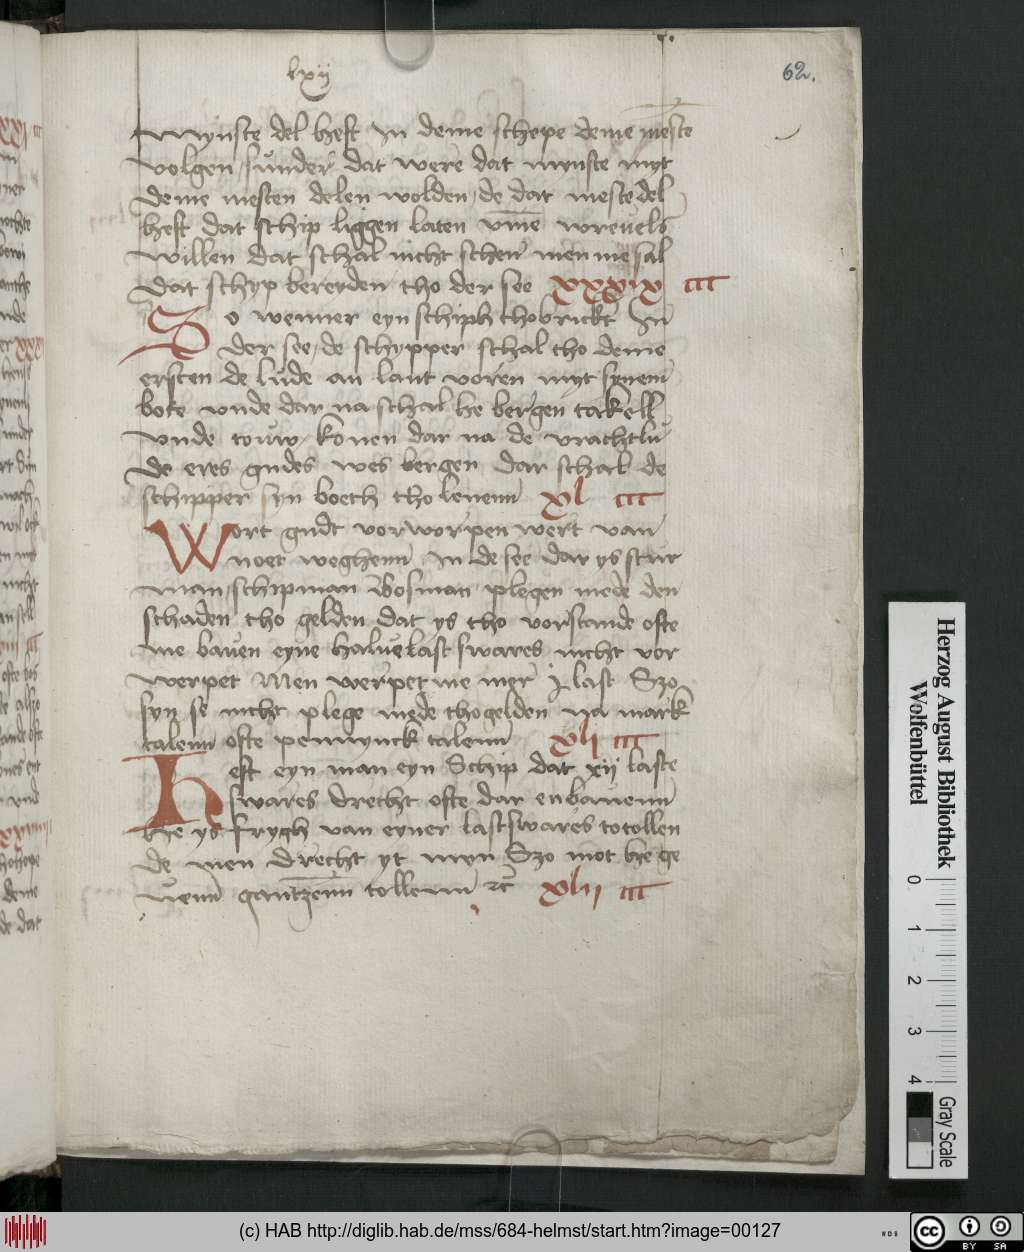 lxij
62.
Mynste del heft In deme schepe deme meste
volgen, sunder dat were dat mynste myt
deme mesten delen wolden, de dat meste del
heft dat schip liggen laten vmme wreuels
willen dat schal nicht schen men me sal
dat schyp bereyden tho der see xxxix
So wenner eyn schiph thobrickt In
der see, de schypper schal tho deme
ersten de lude an lant voren myt synem
bote vnde dar na schal he bergen takell
vnde touw, konen dar na de vrachtlu
de eres gudes wes bergen dar schal de
schipper syn boeth tho lenenn xl
Wort gudt vorworpen wert van
noet weghenn In de see dar ys stur
man, schipman Bosman plegen mede den
schaden tho gelden dat ys tho vorstande ofte
me bauen eyne halue last swares nicht vor
werpet Men werpet me mer j last Szo
syn se nicht plege mede tho gelden na mark
talenn ofte pennynck talenn xli
Heft eyn man eyn Schip dat xij laste
swares drecht ofte dar enbauenn
he ys frygh van eyner last swares to tollen
de men drecht yt myn Szo mot he ge
uenn gantzenn tollenn xlij
Herzog August Bibliothek
Wolfenbüttel
0 1 2 3 4
Gray Scale
(c) HAB http://diglib.hab.de/mss/684-helmst/start.htm?image=00127
WDB
cc BY SA